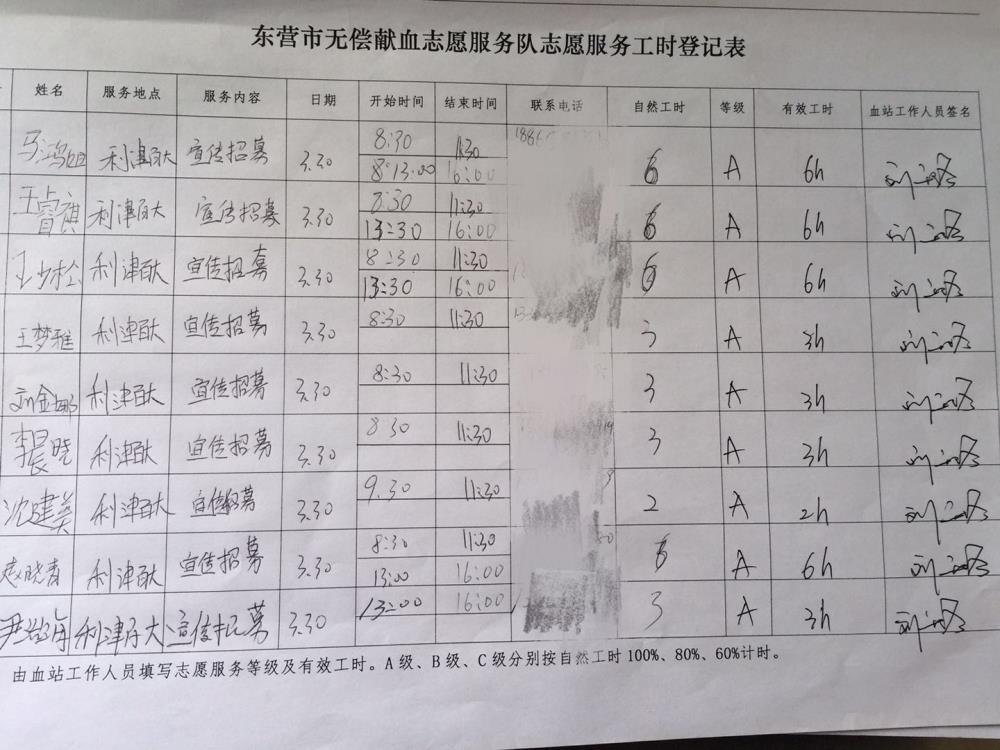 东营市无偿献血志愿服务队志愿服务工时登记表
姓名 服务地点 服务内容 日期 开始时间 结束时间 联系电话 自然工时 等级 有效工时 血站工作人员签名
利津百大 宣传招募 3.30 8:30 11:30 188 6 A 6h
8:13:00 16:00
王睿祺 利津百大 宣传招募 3.30 8:30 11:30 6 A 6h
13:30 16:00
王少松 利津百大 宣传招募 3.30 8:30 11:30 6 A 6h
13:30 16:00
王梦雅 利津百大 宣传招募 3.30 8:30 11:30 3 A 3h
刘金娜 利津百大 宣传招募 3.30 8:30 11:30 3 A 3h
李晨晓 利津百大 宣传招募 3.30 8:30 11:30 3 A 3h
沈建美 利津百大 宣传招募 3.30 9:30 11:30 2 A 2h
赵晓青 利津百大 宣传招募 3.30 8:30 11:30 6 A 6h
13:00 16:00
利津百大 宣传招募 3.30 13:00 16:00 3 A 3h
由血站工作人员填写志愿服务等级及有效工时。A 级、B 级、C 级分别按自然工时 100%、80%、60%计时。